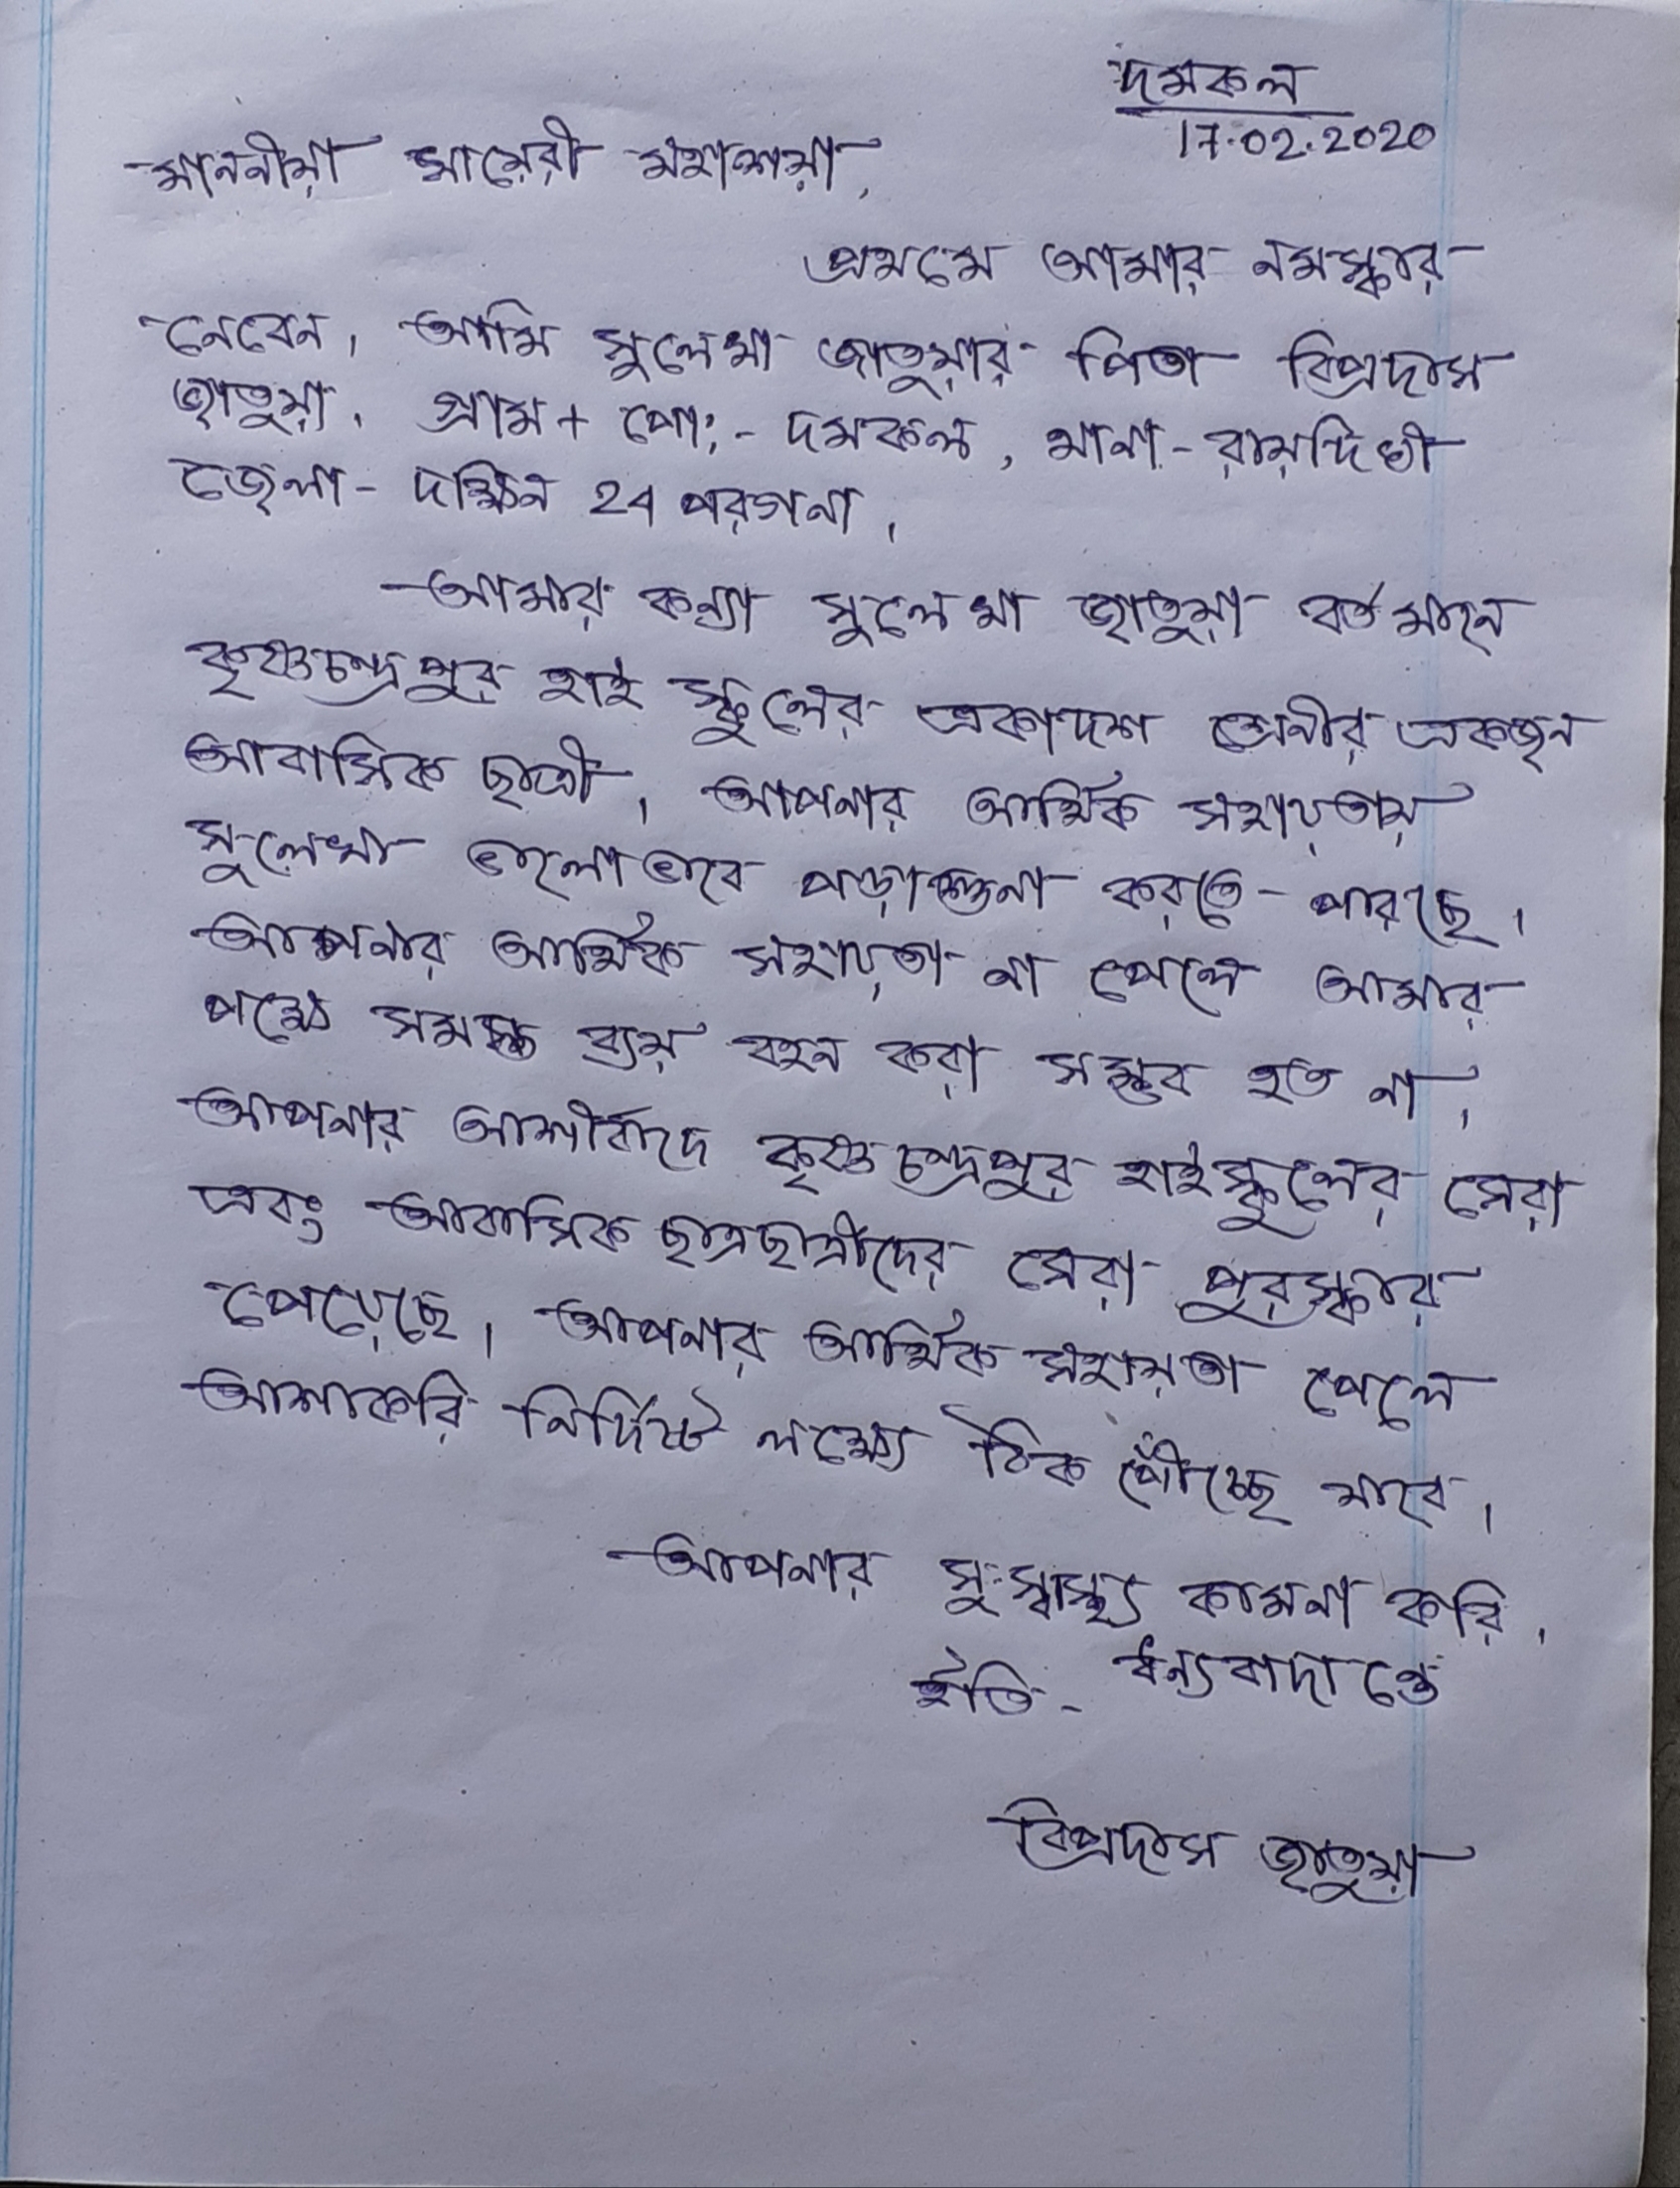 দমকল
17.02.2020
মাননীয়া সায়েরী মহাশয়া,
প্রথমে আমার নমস্কার
নেবেন। আমি সুলেখা জাতুয়ার পিতা বিপ্রদাস
জাতুয়া। গ্রাম + পোঃ - দমকল, থানা - রায়দিঘী
জেলা - দক্ষিন 24 পরগনা।
আমার কন্যা সুলেখা জাতুয়া বর্তমানে
কৃষ্ণচন্দ্রপুর হাই স্কুলের একাদশ শ্রেনীর একজন
আবাসিক ছাত্রী। আপনার আর্থিক সহায়তায়
সুলেখা ভালোভাবে পড়াশুনা করতে পারছে।
আপনার আর্থিক সহায়তা না পেলে আমার
পক্ষে সমস্ত ব্যয় বহন করা সম্ভব হত না।
আপনার আশীর্বাদে কৃষ্ণচন্দ্রপুর হাইস্কুলের সেরা
এবং আবাসিক ছাত্রছাত্রীদের সেরা পুরস্কার
পেয়েছে। আপনার আর্থিক সহায়তা পেলে
আশাকরি নির্দিষ্ট লক্ষ্যে ঠিক পৌঁচ্ছে যাবে।
আপনার সুঃস্বাস্থ্য কামনা করি।
ইতি - ধন্যবাদান্তে
বিপ্রদাস জাতুয়া